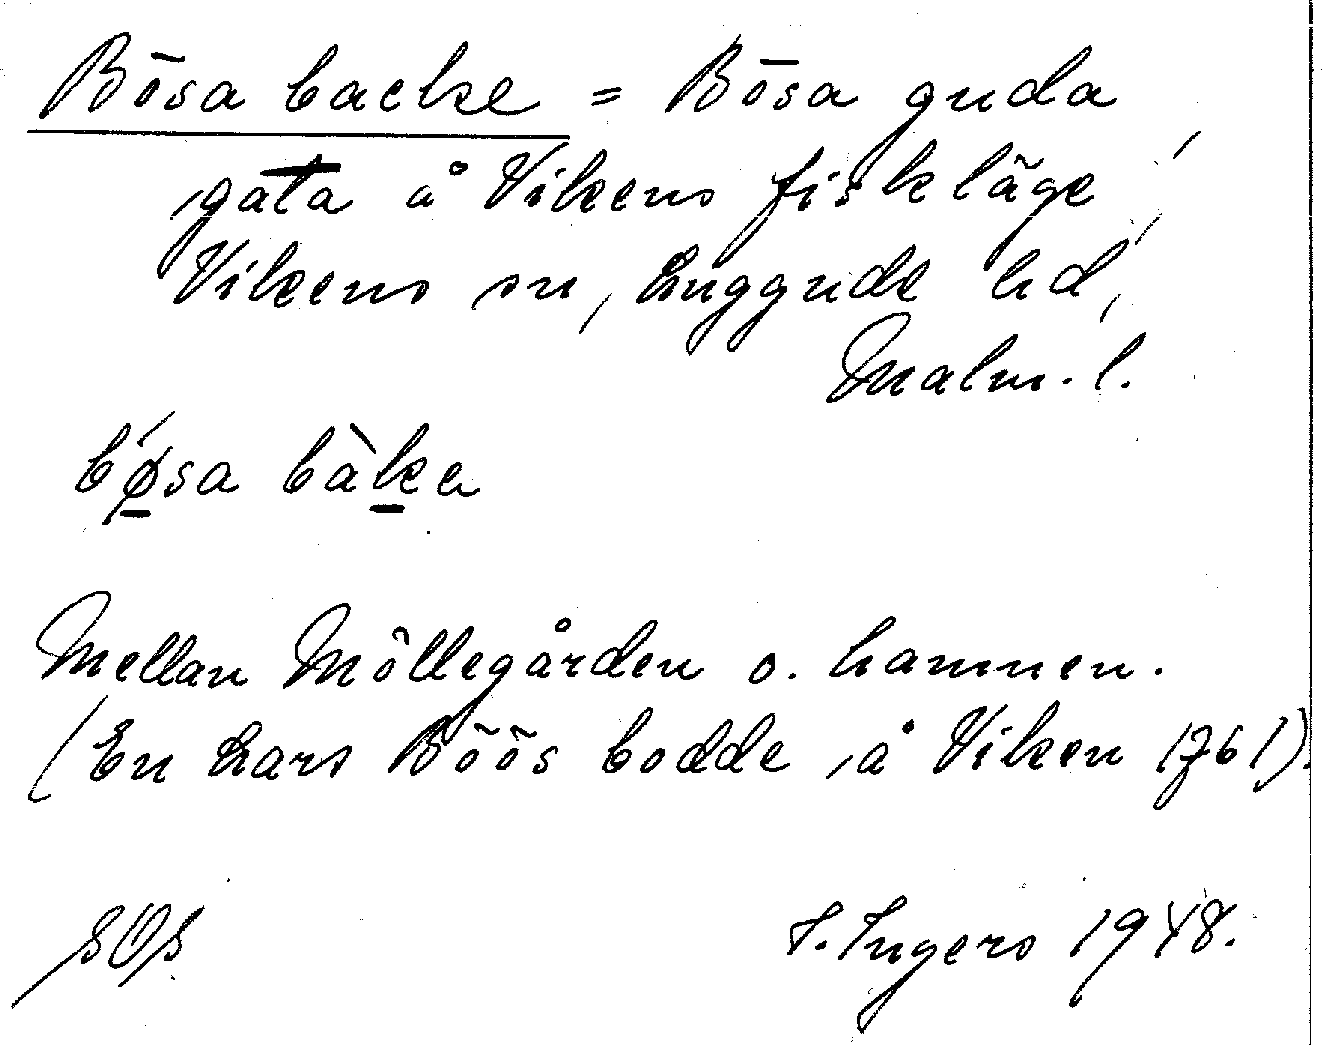 Bösa backe = Bösa guda,
gata å Vikens fiskläge,
Vikens sn, Luggude hd,
Malm. l.
bǿsa bàka
Mellan Möllegården o. hamnen.
(En Lars Böös bodde å Viken 1761).
I. Ingers 1948.